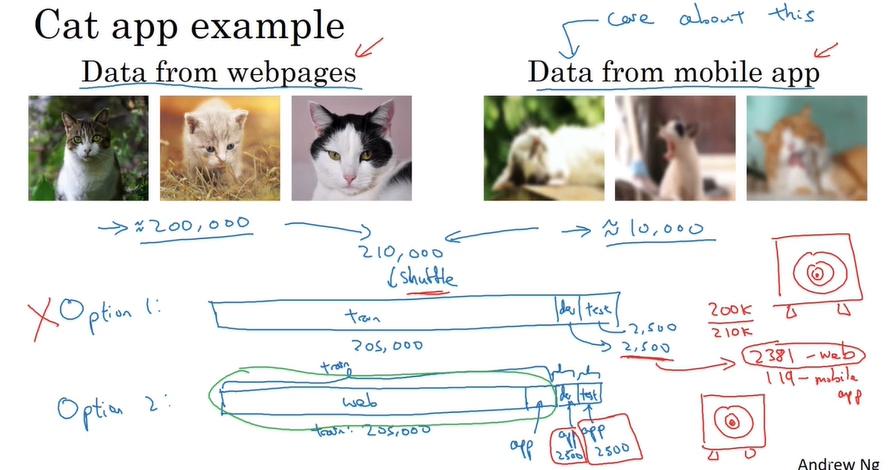 Cat app example
care about this
Data from webpages
Data from mobile app
≈ 200,000
≈ 10,000
210,000
shuffle
X Option 1:
train
dev
test
2,500
2,500
205,000
200K
210K
2381 - web
119 - mobile app
Option 2:
train
web
app
dev
test
train: 205,000
app 2500
app 2500
Andrew Ng